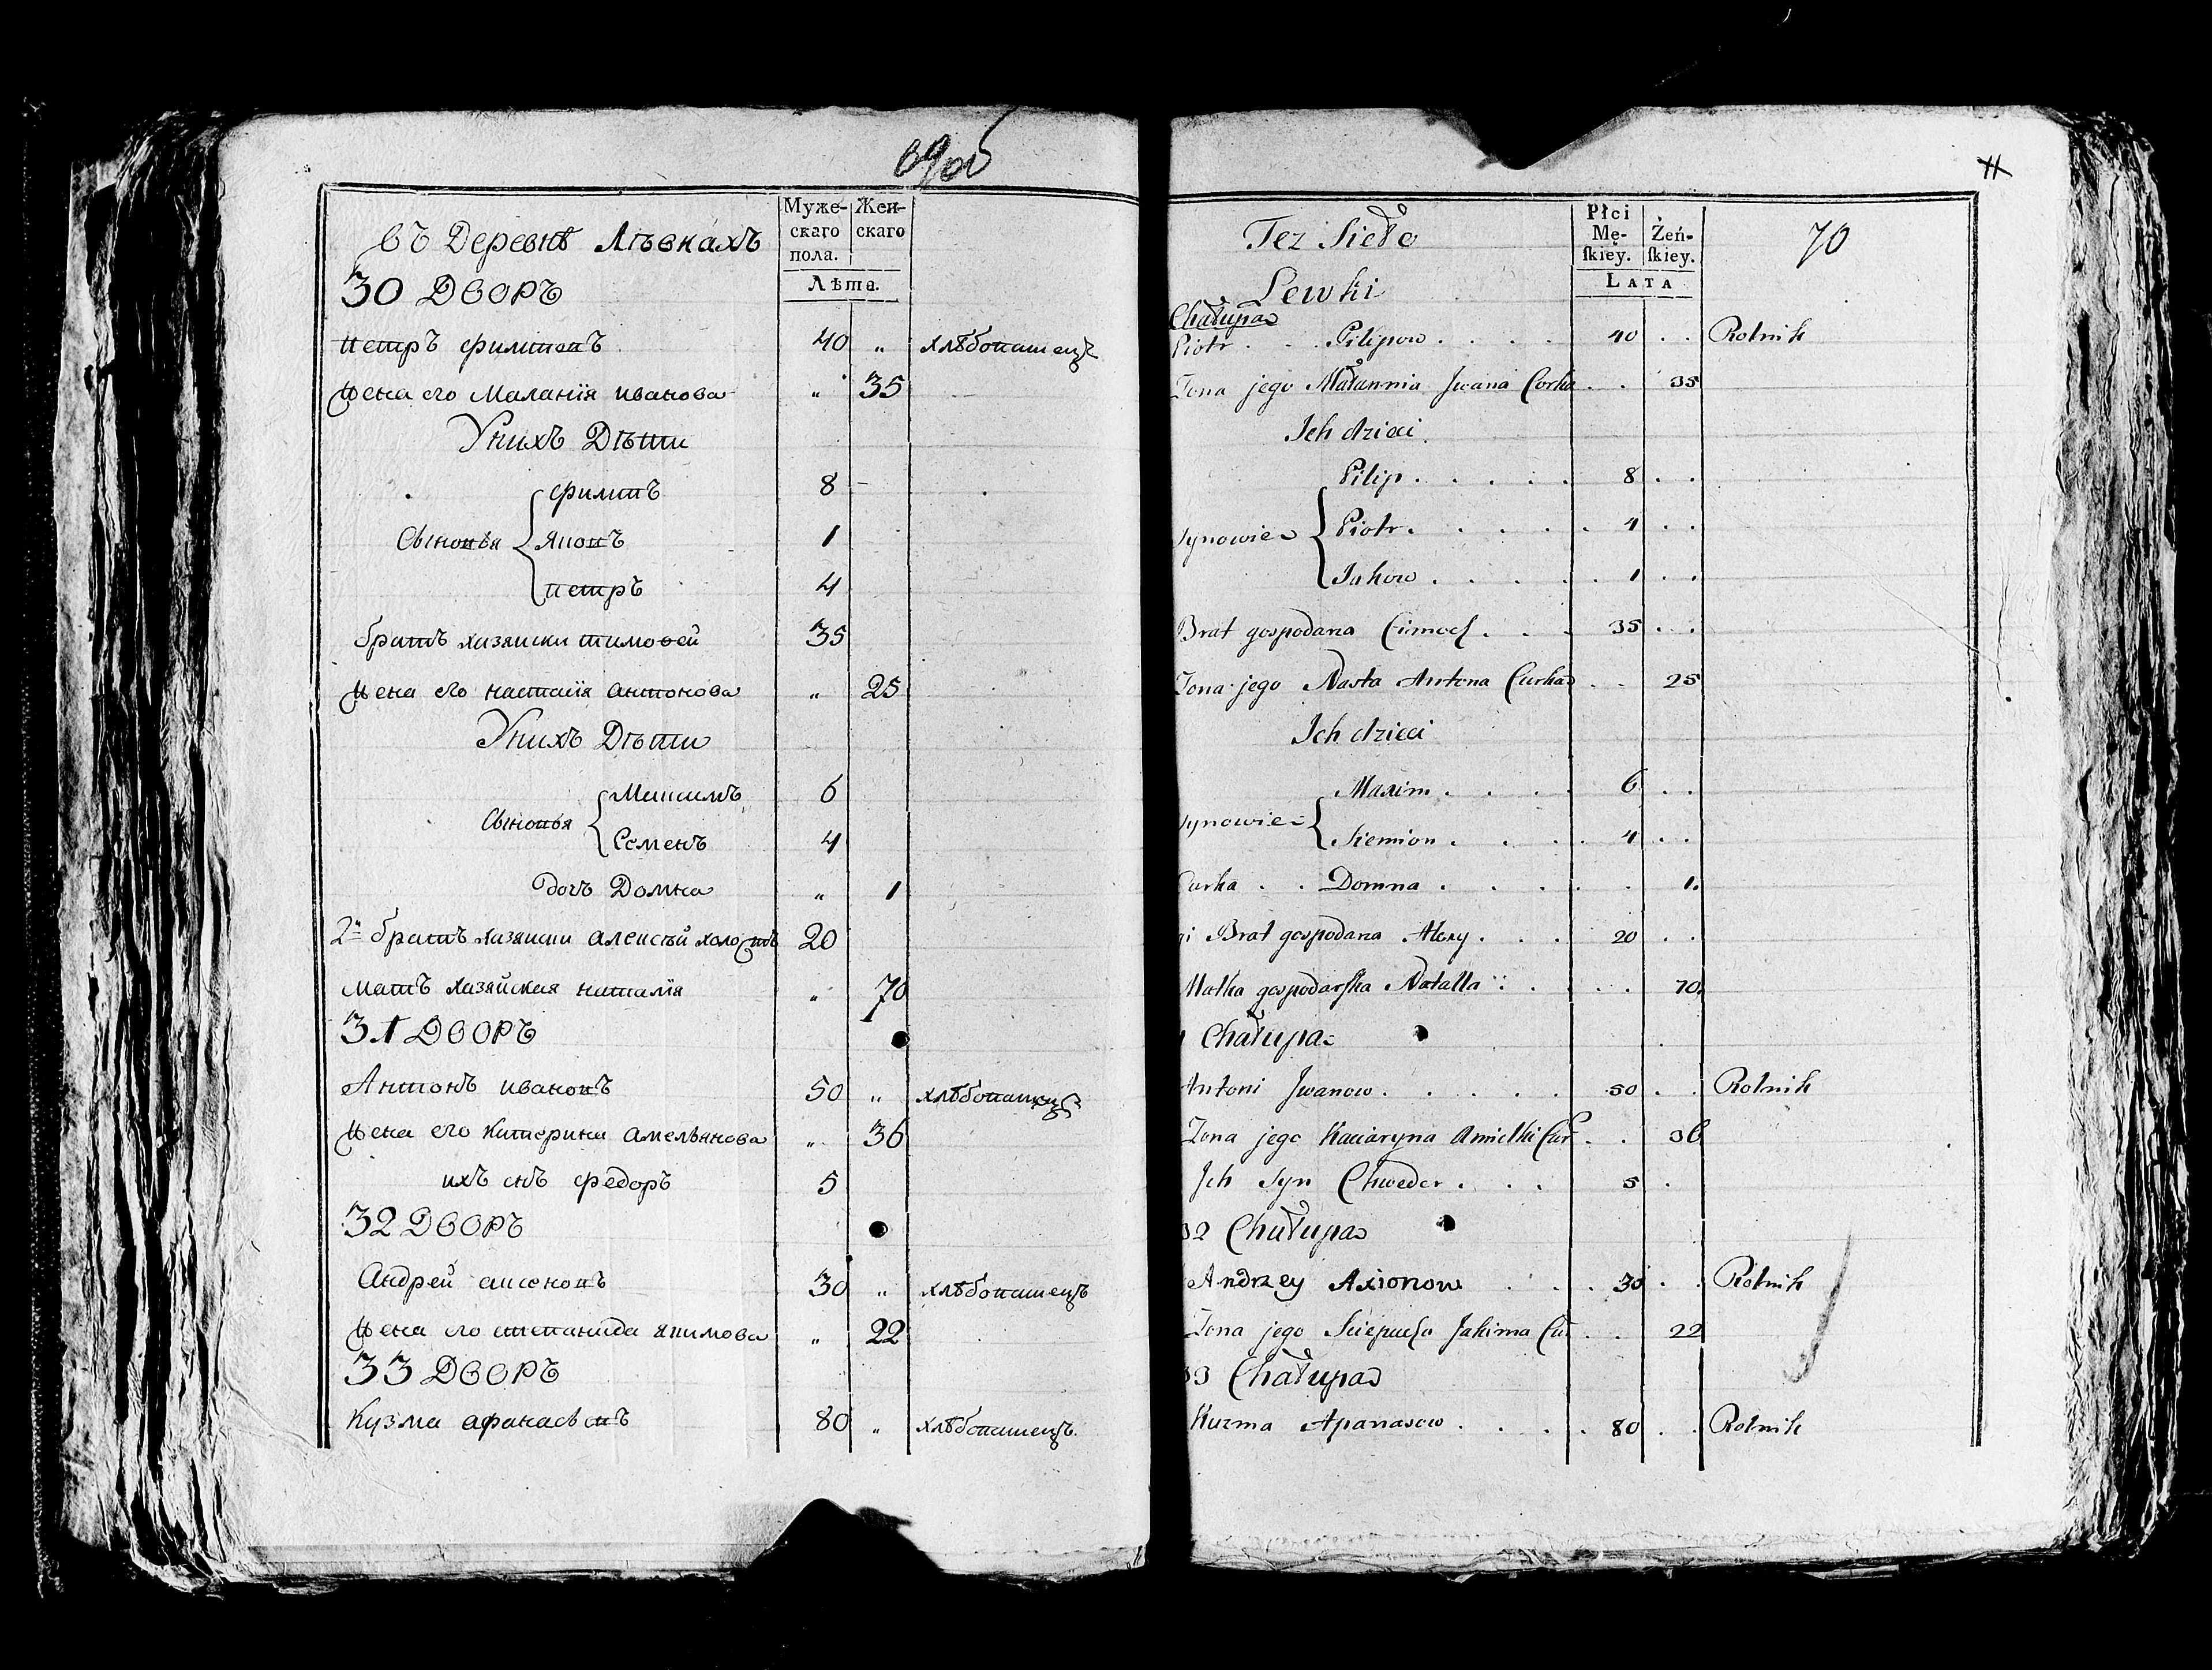 69об
Муже-
скаго
пола.
Жен-
скаго
Лѣта.
въ Деревнѣ Лѣвкахъ
30 Дворъ
петръ филиповъ 40 „ хлѣбопашецъ
жена его Маланія иванова „ 35
Унихъ Дѣти
филипъ 8
Сыновья яковъ 1
петръ 4
братъ хазяиски тимофей 35
жена его настасія антонова „ 25
Унихъ Дѣти
Максимъ 6
Сыновья
Семенъ 4
дочъ Домна „ 1
2й братъ хазяиски алексѣй холостъ 20
матъ хазяйская наталія „ 70
31 Дворъ
Антонъ ивановъ 50 „ хлѣбопашецъ
жена его катерина амельянова „ 36
ихъ снъ федоръ 5
32 Дворъ
Андрей аксеновъ 30 „ хлѣбопашецъ
жена его степанида якимова „ 22
33 Дворъ
Кузма афанасьевъ 80 „ хлѣбопашецъ
11
Płci
Mę-
ſkiey.
Żeń-
ſkiey.
LATA
70
Tez Sieło
Lewki
Chałupa
Piotr . . Pilipow . . . . 40 . . Rolnik
Zona jego Małannia Jwana Corka . . 35
Ich dzieci
Pilip . . . . . 8 . .
Synowie Piotr . . . . . 4 . .
Jakow . . . . . 1 . .
Brat gospodara Cimoch . . . 35 . .
Zona jego Nasta Antona Curka . . 25
Ich dzieci
Maxim . . . . 6 . .
Synowie
Siemion . . . . 4 . .
Curka . . Domna . . . . . 1.
gi Brat gospodara Alexy . . . 20 . .
Matka gospodarſka Natalla . . . . 70.
Chałupa
Antoni Jwanow . . . . . 50 . . Rolnik
Zona jego Kaciaryna Amielki Cur . . 36
Jch Syn Chweder . . . 5 .
32 Chałupa
Andrzey Axionow . . . 30 . . Rolnik
Zona jego Jakima Cur . . 22
33 Chałupa
Kuzma Apanasow . . . . 80 . . Rolnik